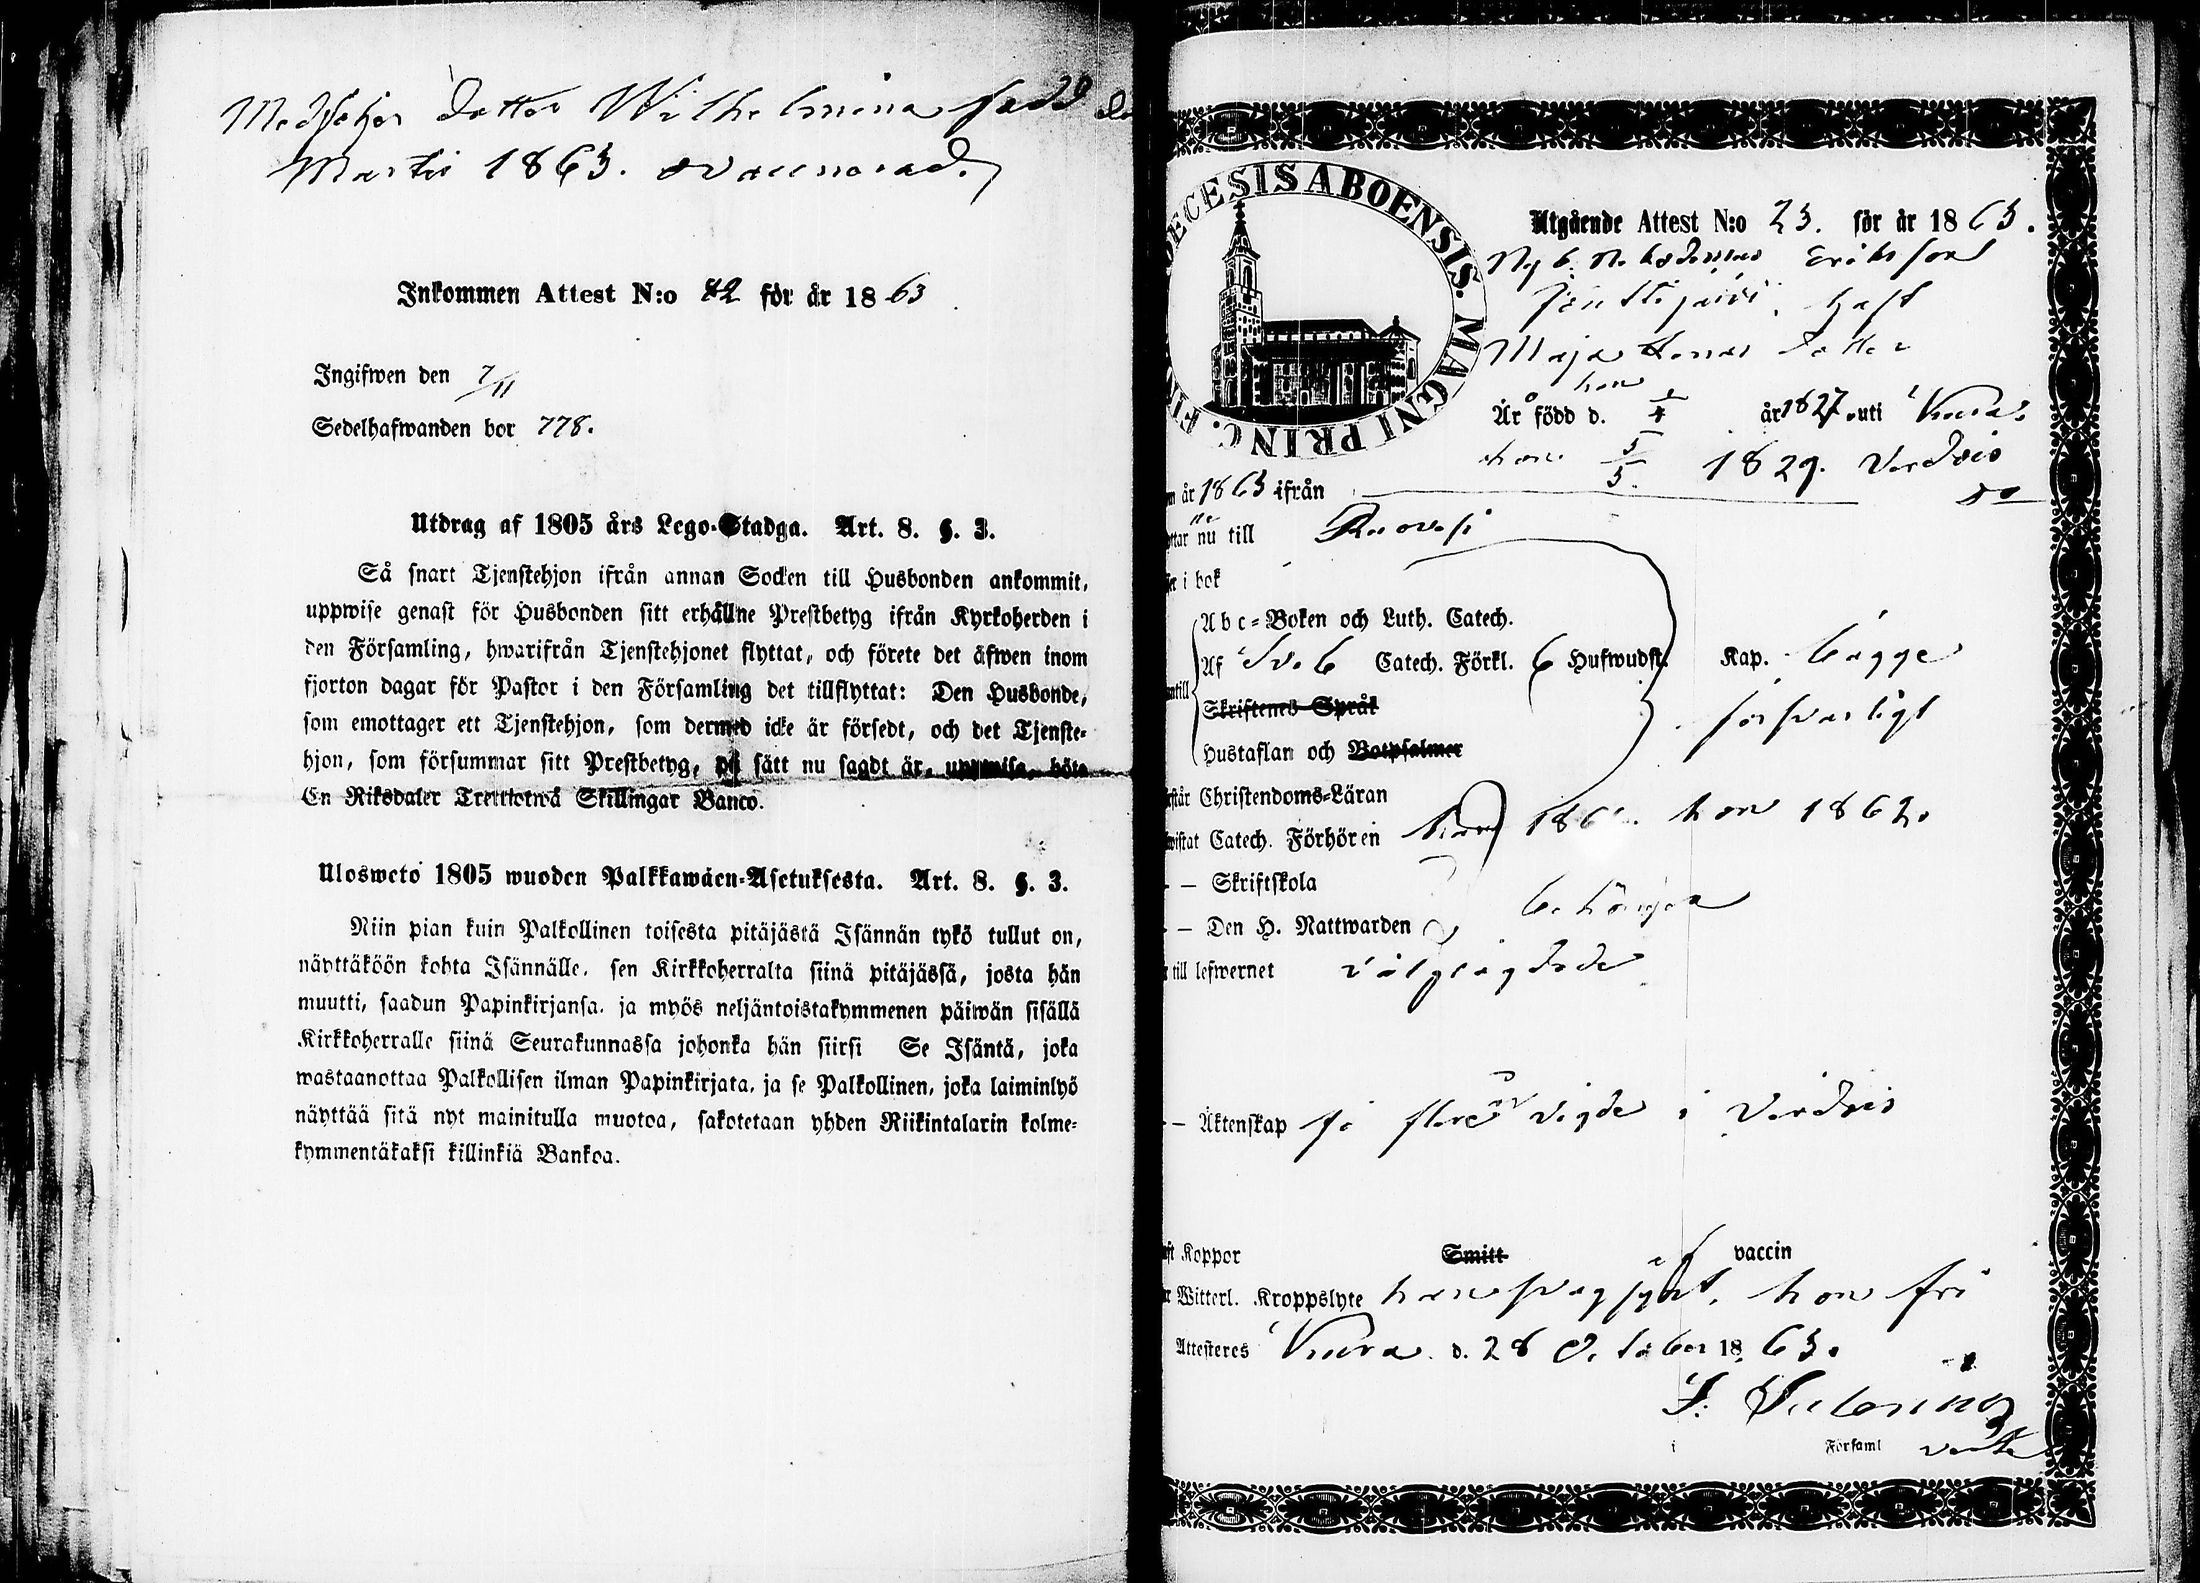 Medföljer dotter Wilhelmina född d
Martii 1863. ovaccinerad.
Inkommen Attest N:o 82 för år 1863
Ingifwen den 7/11
Sedelhafwanden bor 778.
Utdrag af 1805 års Lego-Stadga. Art. 8. §. 3.
Så snart Tjenstehjon ifrån annan Socken till Husbonden ankommit,
uppwise genast för Husbonden sitt erhållne Prestbetyg ifrån Kyrkoherden i
den Församling, hwarifrån Tjenstehjonet flyttat, och förete det äfwen inom
fjorton dagar för Pastor i den Församling det tillflyttat: Den Husbonde,
som emottager ett Tjenstehjon, som dermed icke är försedt, och det Tjenste-
hjon, som försummar sitt Prestbetyg, på sätt nu sagdt är, uppwisa, böte
En Riksdaler Trettiotwå Skillingar Banco.
Ulosweto 1805 wuoden Palkkawäen-Asetuksesta. Art. 8. §. 3.
Niin pian kuin Palkollinen toisesta pitäjästä Isännän tykö tullut on,
näyttäköön kohta Isännälle, sen Kirkkoherralta siinä pitäjässä, josta hän
muutti, saadun Papinkirjansa, ja myös neljäntoistakymmenen päiwän sisällä
Kirkkoherralle siinä Seurakunnassa johonka hän siirsi Se Isäntä, joka
wastaanottaa Palkollisen ilman Papinkirjata, ja se Palkollinen, joka laiminlyö
näyttää sitä nyt mainitulla muotoa, sakotetaan yhden Riikintalarin kolme-
kymmentäkaksi killinkiä Bankoa.
DECESIS ABOENSIS. MAGNI PRINC. FI
Utgående Attest N:o 23. för år 1863.
Nyb. Nikodemus Eriksson
Jenttijärvi, h
Maja dotter
han
Är född d. 1/4 år 1827 uti Kiura.
hon 5/5 1829. Verdois
år 1863 ifrån
ttar nu till Ruovesi
i bok
Abc-Boken och Luth. Catech.
Af Sveb Catech. Förkl. 6 Hufwudst. Kap. begge
antill
Skriftenes Språk försvarligt
Hustaflan och Botpsalmer
står Christendoms-Läran
wistat Catech. Förhören han 186 hon 1862.
– Skriftskola
– Den H. Nattwarden begångna
till lefwernet välfrägdade
– Äktenskap vigde i Verdois
ft Koppor Smitt vaccin
Witterl. Kroppslyte han svagsynt, hon fri
Attesteres Kiura d. 28 October 1863.
i Församl